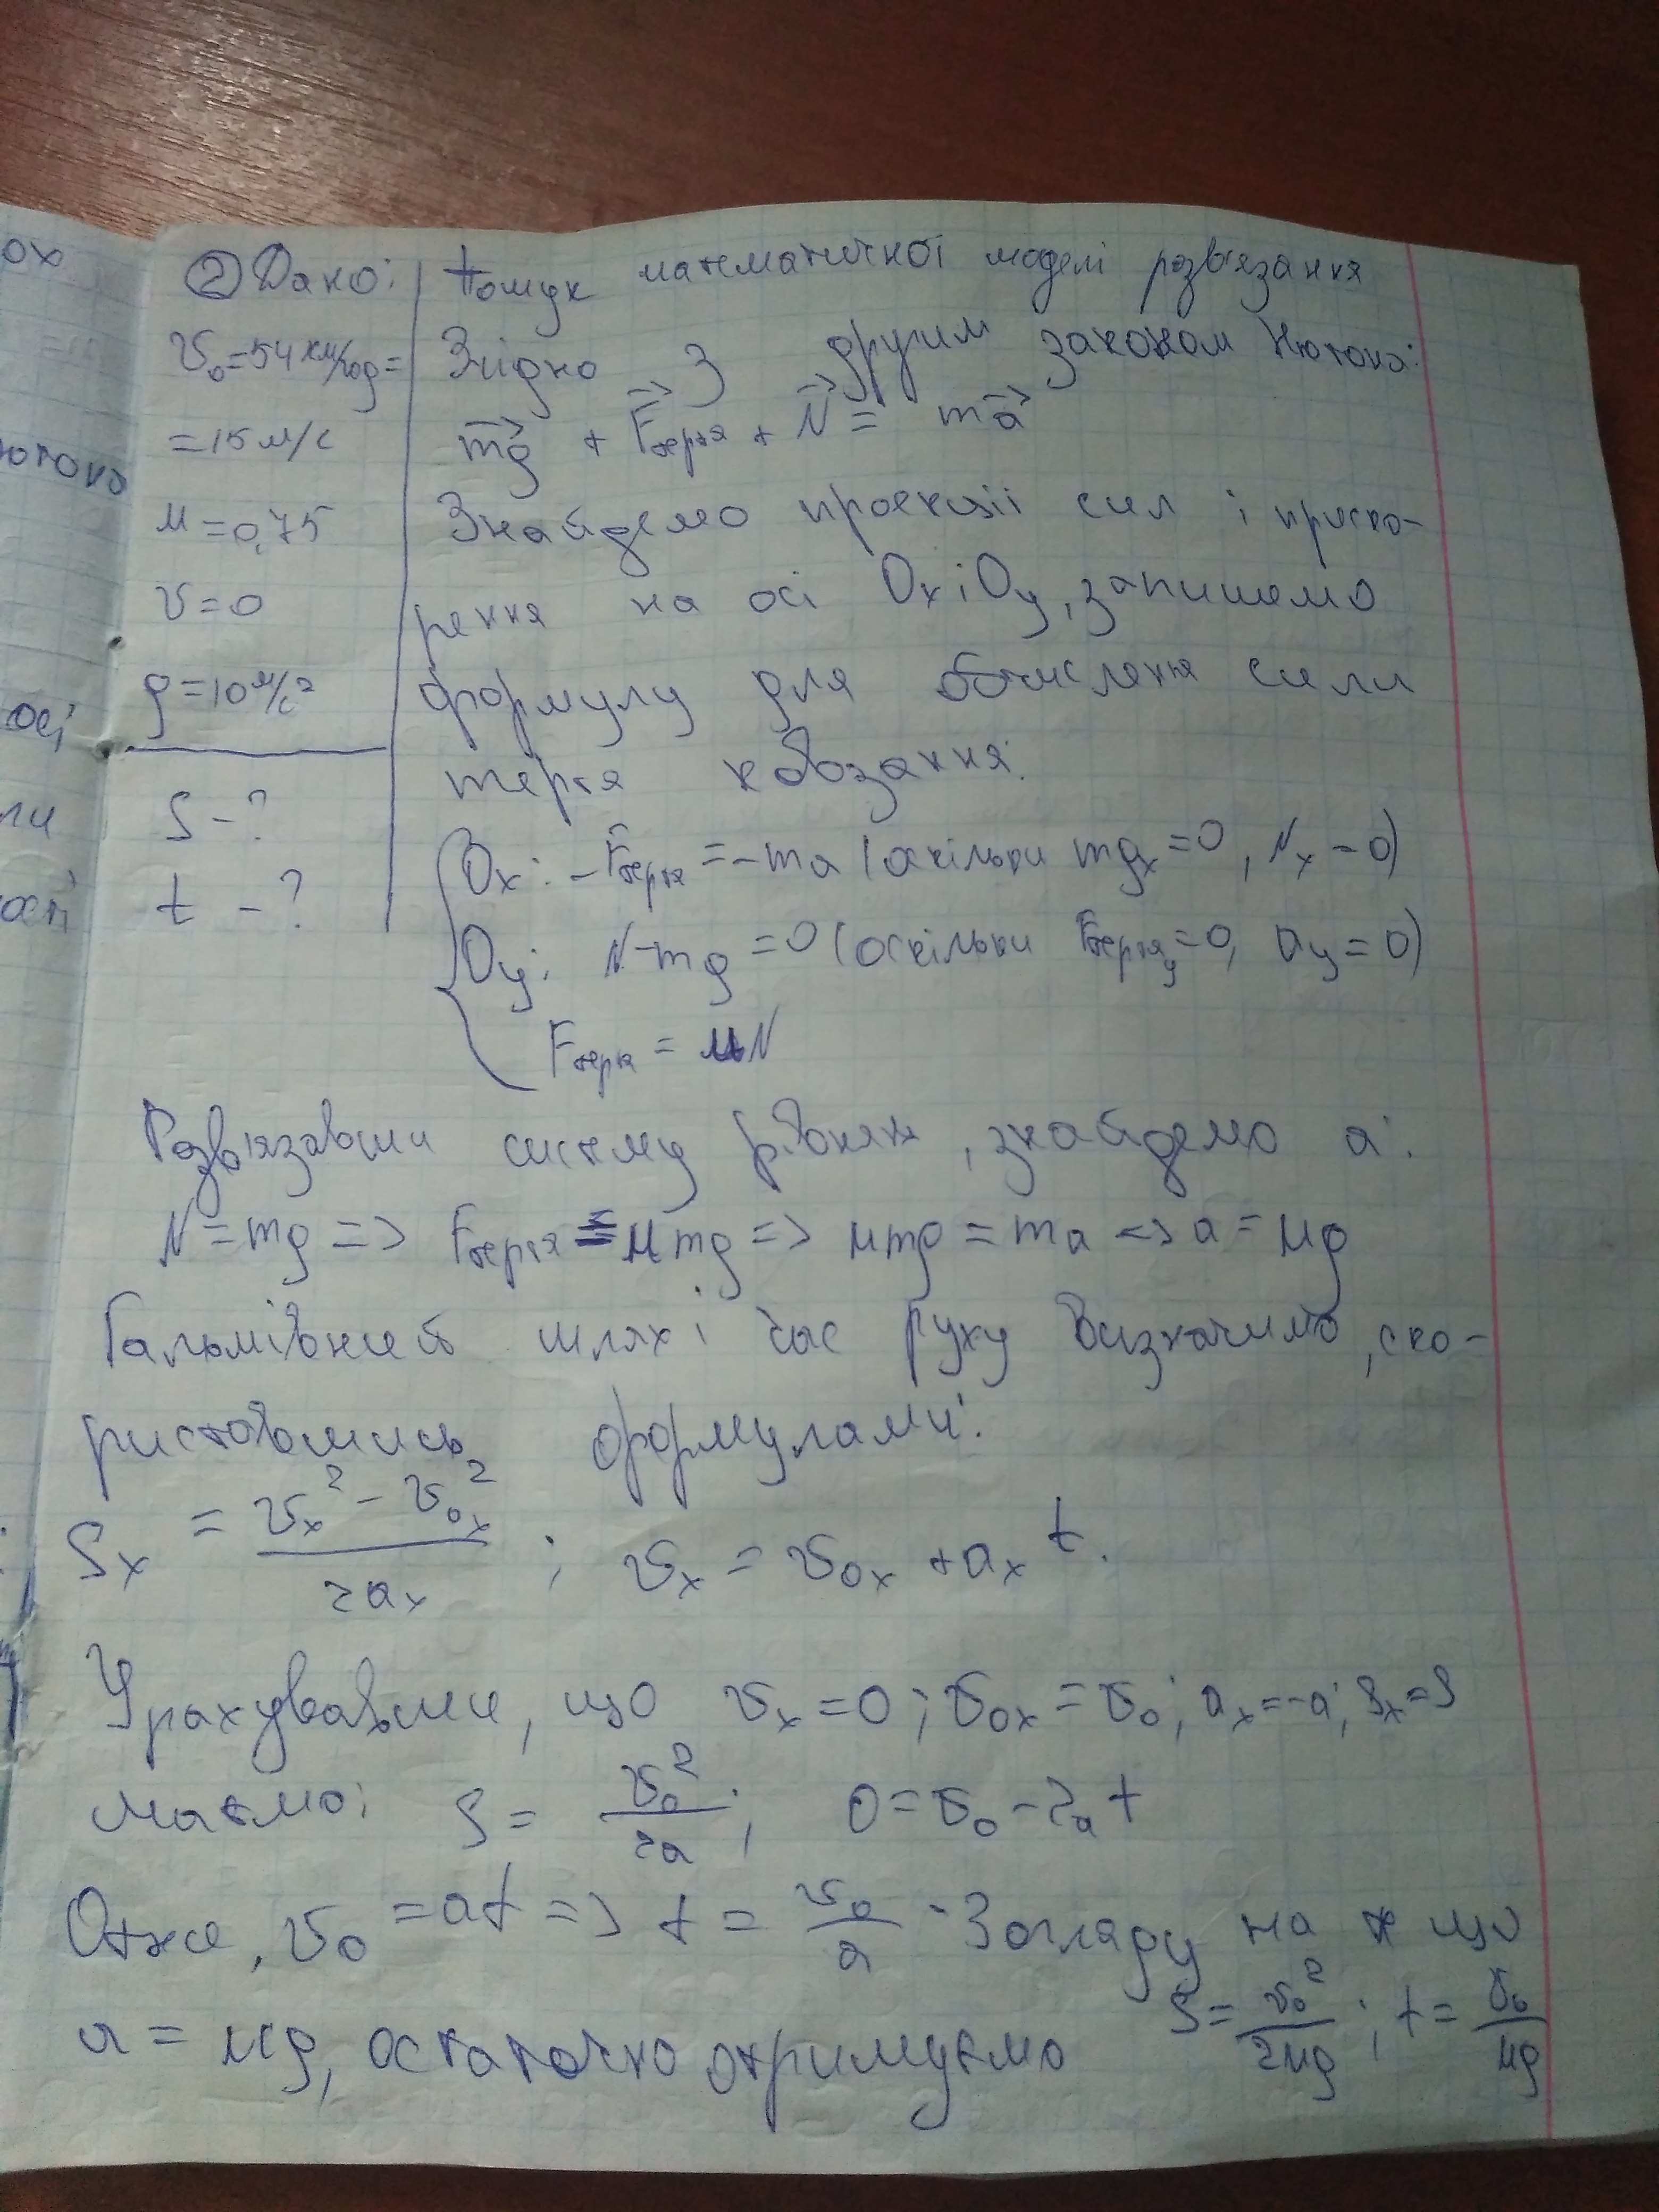 ох
② Дано:
Пошук математичної моделі розв'язання
v₀ = 54 км/год =
Згідно з другим законом Ньютона:
= 15 м/с
mg⃗ + F⃗тертя + N⃗ = ma⃗
ютона
μ = 0,75
Знайдемо проекції сил і приско-
v = 0
рення на осі Ox і Oy, запишемо
g = 10 м/с²
формулу для обчислення сили
осі
тертя ковзання:
S - ?
ли
Ox: -Fтертя = -ma (оскільки mgₓ = 0, Nₓ = 0)
t - ?
ості
Oy: N - mg = 0 (оскільки Fтертя y = 0, ay = 0)
Fтертя = μN
Розв'язавши систему рівнянь, знайдемо a:
N = mg => Fтертя = μmg => μmg = ma => a = μg
Гальмівний шлях і час руху визначимо, ско-
риставшись формулами:
Sₓ = (vₓ² - v₀ₓ²)/(2aₓ) ; vₓ = v₀ₓ + aₓt.
Урахувавши, що vₓ = 0; v₀ₓ = v₀; aₓ = -a; Sₓ = S
маємо: S = v₀²/(2a); 0 = v₀ - 2at
Отже, v₀ = at => t = v₀/a. З огляду на те що
a = μg, остаточно отримуємо S = v₀²/(2μg); t = v₀/(μg)